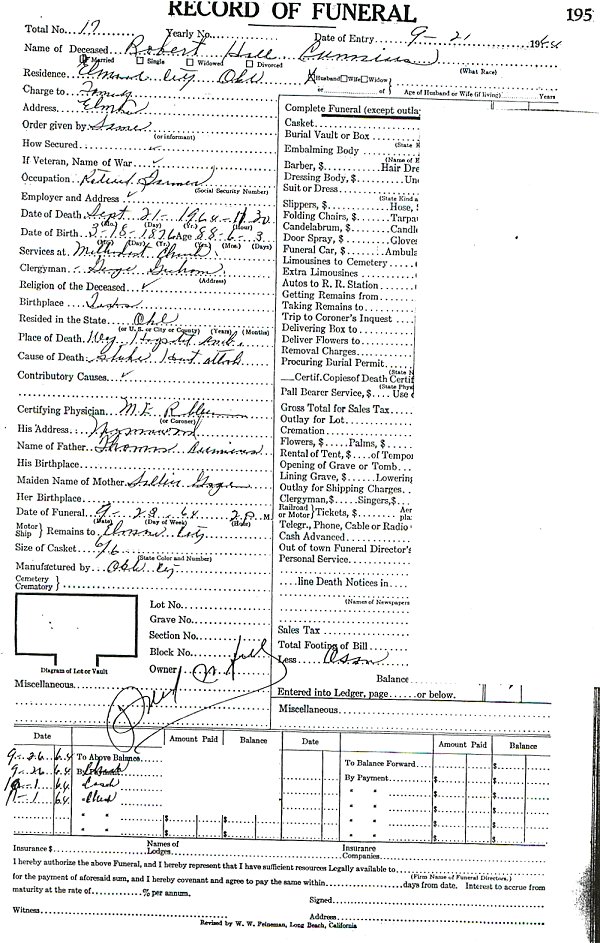 RECORD OF FUNERAL
195
Total No. 17 Yearly No. Date of Entry 9-21 1964
Name of Deceased Robert Hall
Married Single Widowed Divorced (What Race)
Residence City Okla X Husband Wife Widow
or of Age of Husband or Wife (if living) Years
Charge to Family
Address
Order given by Same
(or informant)
How Secured ✓
If Veteran, Name of War ✓
Occupation Retired Farmer
(Social Security Number)
Employer and Address ✓
Date of Death Sept. 21-1964-11 30
(Mo.) (Day) (Yr.) (Hour)
Date of Birth 3-18-1876 Age 88-6-3
(Mo.) (Day) (Yr.) (Yrs.) (Mos.) (Days)
Services at Methodist Church
Clergyman George
(Address)
Religion of the Deceased ✓
Birthplace Texas
Resided in the State Okl
(or U. S. or City or County) (Years) (Months)
Place of Death Hospital
Cause of Death Heart attack
Contributory Causes ✓
Certifying Physician M.D.
(or Coroner)
His Address
Name of Father Thomas
His Birthplace
Maiden Name of Mother
Her Birthplace
Date of Funeral 9-23-64 2 P. M.
(Date) (Day of Week) (Hour)
Motor Ship Remains to City
Size of Casket 6/6
(State Color and Number)
Manufactured by Okla City
Cemetery Crematory
Complete Funeral (except outla
Casket
Burial Vault or Box
(State K
Embalming Body
(Name of E
Barber, $ Hair Dre
Dressing Body, $ Un
Suit or Dress
(State Kind a
Slippers, $ Hose, $
Folding Chairs, $ Tarpa
Candelabrum, $ Candl
Door Spray, $ Glove
Funeral Car, $ Ambula
Limousines to Cemetery
Extra Limousines
Autos to R. R. Station
Getting Remains from
Taking Remains to
Trip to Coroner's Inquest
Delivering Box to
Deliver Flowers to
Removal Charges
Procuring Burial Permit
(State N
Certif. Copies of Death Certif
(State Phys
Pall Bearer Service, $ Use
Gross Total for Sales Tax
Outlay for Lot
Cremation
Flowers, $ Palms, $
Rental of Tent, $ of Tempo
Opening of Grave or Tomb
Lining Grave, $ Lowering
Outlay for Shipping Charges
Clergyman, $ Singers, $
Railroad or Motor Tickets, $ Aer
pla
Telegr., Phone, Cable or Radio
Cash Advanced
Out of town Funeral Director's
Personal Service
line Death Notices in
(Names of Newspapers
Sales Tax
Total Footing of Bill
Less
Balance
Entered into Ledger, page or below.
Miscellaneous
Lot No.
Grave No.
Section No.
Block No.
Owner
Diagram of Lot or Vault
Miscellaneous
Paid in full
Date Amount Paid Balance Date Amount Paid Balance
9-26 64 To Above Balance To Balance Forward $ $
9-26 64 By By Payment $ $
10-1 64 Cash " " $ $
11-1 64 " " $ $
" " $ $ " " $ $
" " $ $ " " $ $
Insurance $ Names of Lodges Insurance Companies
I hereby authorize the above Funeral, and I hereby represent that I have sufficient resources Legally available to
(Firm Name of Funeral Directors.)
for the payment of aforesaid sum, and I hereby covenant and agree to pay the same within days from date. Interest to accrue from
maturity at the rate of % per annum.
Signed
Witness Address
Revised by W. W. Feineman, Long Beach, California